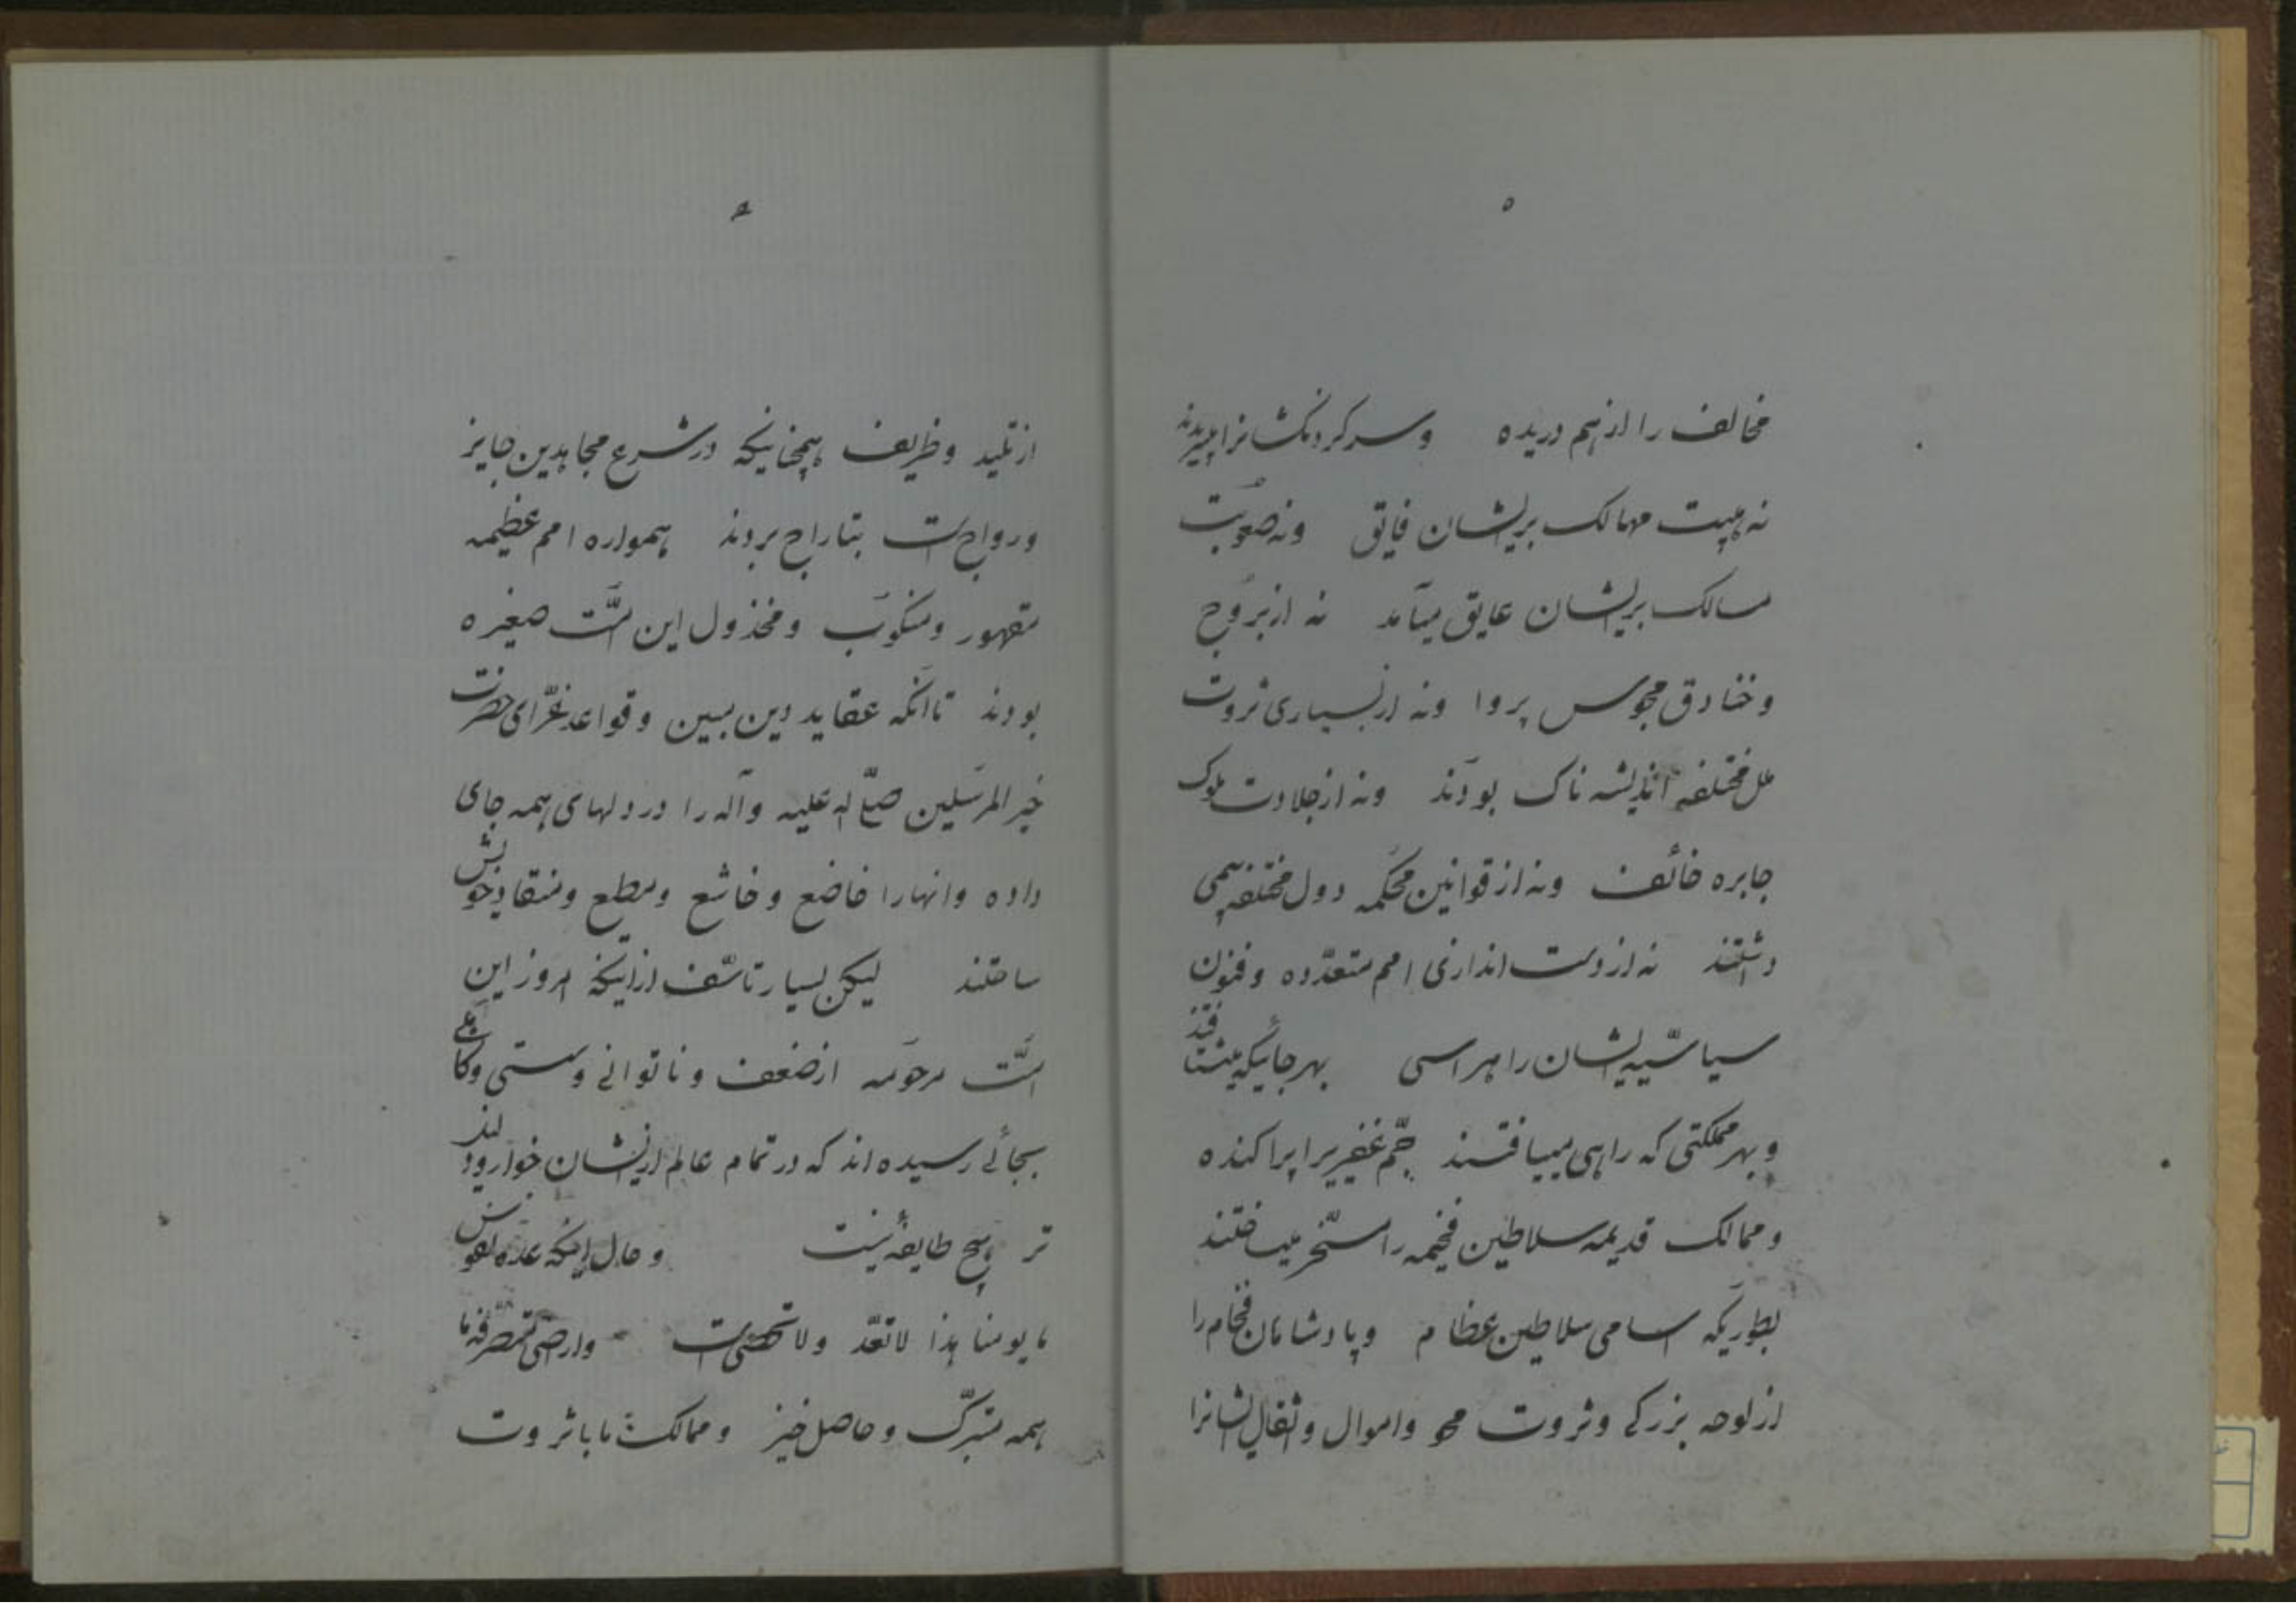 ۵
مخالف را از هم دریده وسر کردنکشانرا میبریدند
نه هیبت مهالک بریشان فایق ونه صعوبت
مسالک بریشان عایق میآمد نه از بروج
و خنادق مجوس پروا ونه از بسیاری ثروت
ملل مختلفه اندیشه ناک بودند ونه از جلادت ملوک
جابره خائف ونه از قوانین محکمه دول مختلفه بیمی
داشتند نه از دست اندازی امم متعدّده وفنون
سیاسیّه ایشان را هراسی بهر جائیکه میشتافتند
وبهر مملکتی که راهی مییافتند جمّ غفیریرا پراکنده
وممالک قدیمه سلاطین فخیمه را مسخّر میساختند
بطوریکه اسامی سلاطین عظام وپادشاهان فخام را
از لوحه بزرکی وثروت محو واموال واثقال ایشانرا
۶
از تلید وطریف همچنانیکه در شرع مجاهدین جایز
ورواج است بتاراج بردند همواره امم عظیمه
مقهور ومنکوب ومخذول این امّت صغیره
بودند تا آنکه عقاید دین مبین وقواعد غرّای حضرت
خیر المرسلین صلّی الله علیه وآله را در دلهای همه جای
داده وانهارا خاضع وخاشع ومطیع ومنقاد خویش
ساختند لیکن بسیار تاسّف از اینکه امروز این
امّت مرحومه از ضعف وناتوانی وسستی وکاهلی
بجائی رسیده اند که در تمام عالم از ایشان خوار وذلیل
تر هیچ طایفهٔ نیست وحال اینکه عده نفوس
ما یومنا هذا لا تعدّ ولا تحصی است واراضی متصرّفه ما
همه متبرّک وحاصل خیز وممالک ما با ثروت